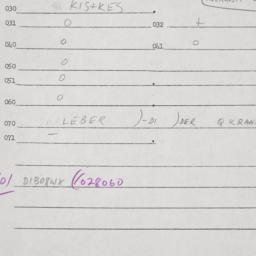 030 KIS+KES
031 0 032 +
040 0 041 0
050 0
051 0
060 0
070 LEBER )-DI )DER Q KRAN
072 –
01 D1308WX ((028060